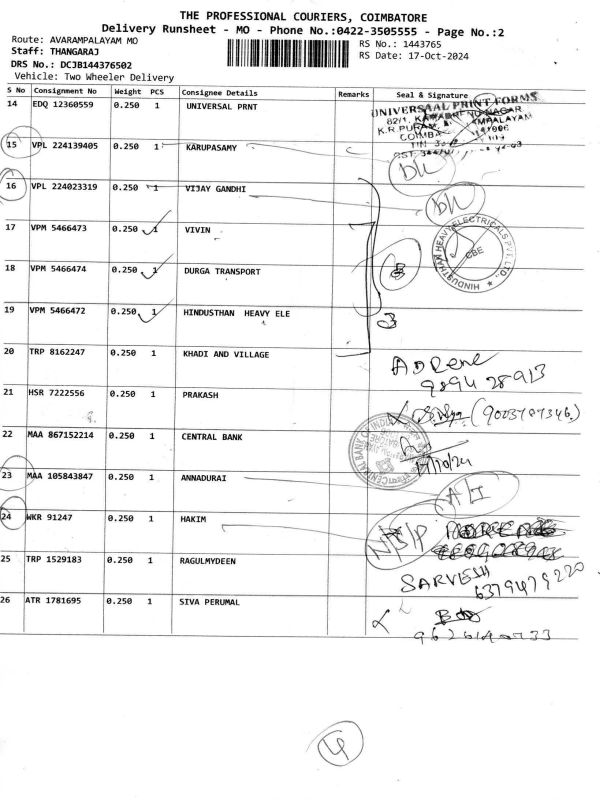 THE PROFESSIONAL COURIERS, COIMBATORE
Delivery Runsheet - MO - Phone No.:0422-3505555 - Page No.:2
Route: AVARAMPALAYAM MO
Staff: THANGARAJ
DRS No.: DCJB144376502
Vehicle: Two Wheeler Delivery
RS No.: 1443765
RS Date: 17-Oct-2024
S No Consignment No Weight PCS Consignee Details Remarks Seal & Signature
14 EDQ 12360559 0.250 1 UNIVERSAL PRNT
UNIVERSAAL PRINT FORMS
15 VPL 224139405 0.250 1 KARUPASAMY
DL
16 VPL 224023319 0.250 1 VIJAY GANDHI
DL
17 VPM 5466473 0.250 1 VIVIN
HINDUSTHAN HEAVY ELECTRICALS PVT. LTD.,
CBE
18 VPM 5466474 0.250 1 DURGA TRANSPORT
19 VPM 5466472 0.250 1 HINDUSTHAN HEAVY ELE
3
20 TRP 8162247 0.250 1 KHADI AND VILLAGE
9894 28913
21 HSR 7222556 0.250 1 PRAKASH
22 MAA 867152214 0.250 1 CENTRAL BANK
CENTRAL BANK OF INDIA
17/10/24
23 MAA 105843847 0.250 1 ANNADURAI
A/I
24 WKR 91247 0.250 1 HAKIM
N/S/P
25 TRP 1529183 0.250 1 RAGULMYDEEN
SARVESH
6379479220
26 ATR 1781695 0.250 1 SIVA PERUMAL
4